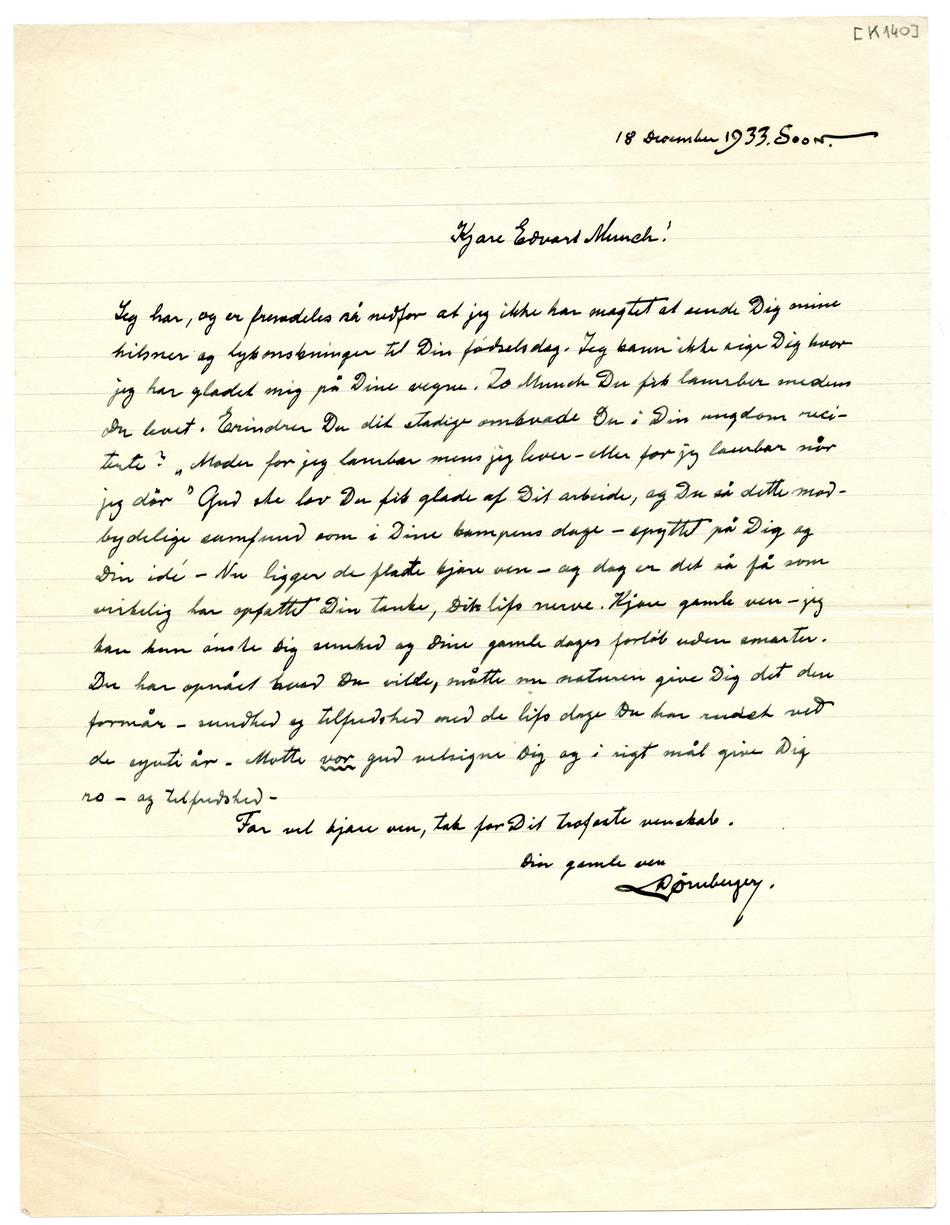 [K140]
18 December 1933. Soon.
Kjære Edvard Munch!
Jeg har, og er fremdeles så nedfor at jeg ikke har magtet at sende Dig mine
hilsner og lykønskninger til Din fødselsdag. Jeg kann ikke sige Dig hvor
jeg har glædet mig på Dine vegne. Jo Munch Du fik laurbær medens
Du levet. Erindrer Du dit stadige omkvæde Du i Din ungdom reci-
terte? „Moder får jeg laurbær mens jeg lever – eller får jeg laurbær når
jeg dör" Gud ske lov Du fik glæde af Dit arbeide, og Du så dette mod-
bydelige samfund som i Dine kampens dage – spyttet på Dig og
Din idé – Nu ligger de flade kjære ven – og dog er det så få som
virkelig har opfattet Din tanke, Dit lifs nerve. Kjære gamle ven – jeg
kan kun önske Dig sunhed og Dine gamle dages forløb uden smerter.
Du har opnået hvad Du vilde, måtte nu naturen give Dig det den
formår – sundhed og tilfredshed med de lifs dage Du har nådet ved
de sytti år – Motte vor gud velsigne Dig og i rigt mål give Dig
ro – og tilfredshed –
Far vel kjære ven, tak for Dit trofaste venskab.
Din gamle ven
Dørnberger.